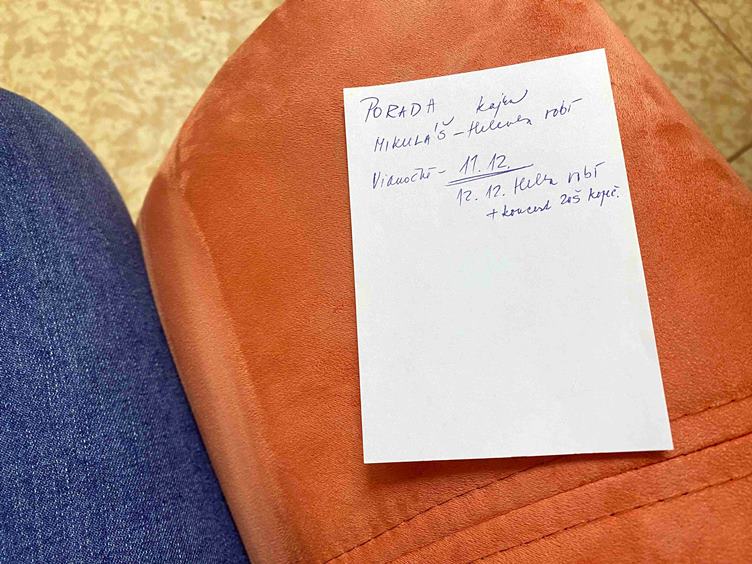 PORADA
MIKULÁŠ - Helena robí
Vianočné - 11.12.
12.12. Helena robí
+ koncert ZUŠ Kopč.